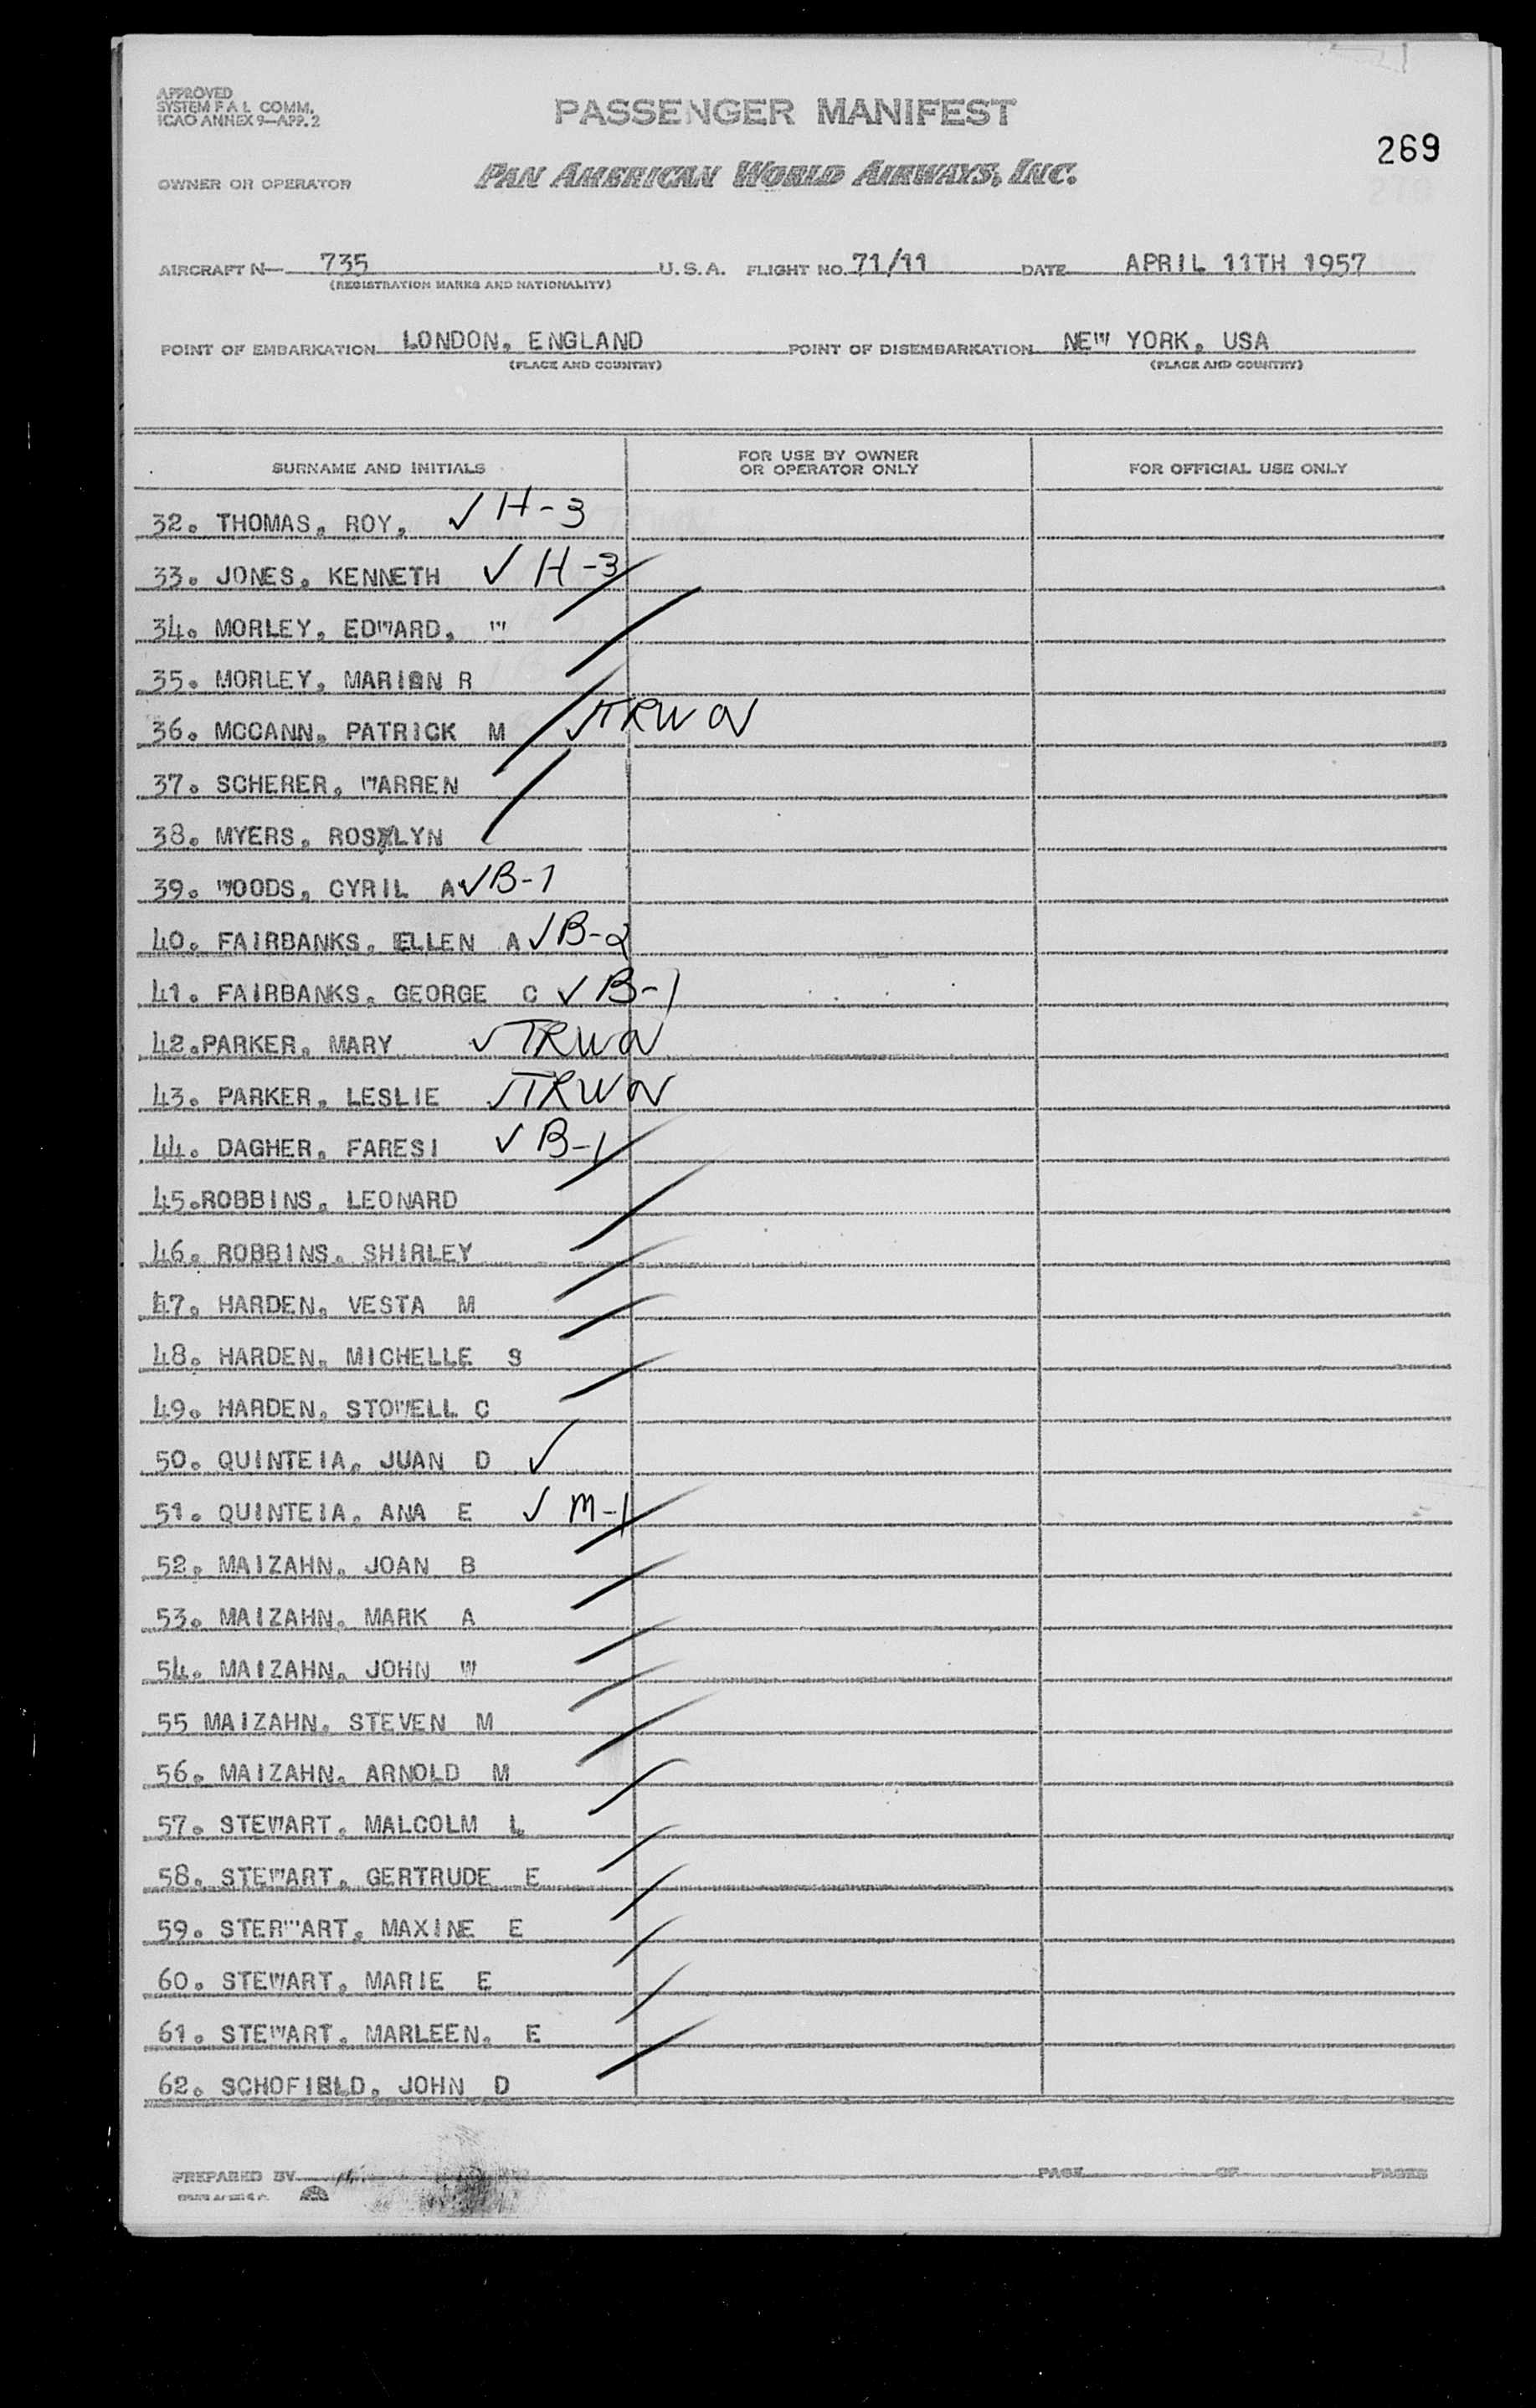 APPROVED
SYSTEM F A L COMM.
ICAO ANNEX 9—APP. 2
PASSENGER MANIFEST
269
OWNER OR OPERATOR
PAN AMERICAN WORLD AIRWAYS, INC.
AIRCRAFT N— 735 U. S. A. FLIGHT NO. 71/11 DATE APRIL 11TH 1957
(REGISTRATION MARKS AND NATIONALITY)
POINT OF EMBARKATION LONDON, ENGLAND POINT OF DISEMBARKATION NEW YORK, USA
(PLACE AND COUNTRY) (PLACE AND COUNTRY)
SURNAME AND INITIALS FOR USE BY OWNER OR OPERATOR ONLY FOR OFFICIAL USE ONLY
32. THOMAS, ROY, ✓ H-3
33. JONES, KENNETH ✓ H-3
34. MORLEY, EDWARD, W
35. MORLEY, MARION R
36. MCCANN, PATRICK M ✓ TRWOV
37. SCHERER, WARREN
38. MYERS, ROSLYN
39. WOODS, CYRIL A ✓ B-1
40. FAIRBANKS, ELLEN A ✓ B-2
41. FAIRBANKS, GEORGE C ✓ B-1
42.PARKER, MARY ✓ TRWOV
43. PARKER, LESLIE ✓ TRWOV
44. DAGHER, FARESI ✓ B-1
45.ROBBINS, LEONARD
46. ROBBINS, SHIRLEY
47. HARDEN, VESTA M
48. HARDEN, MICHELLE S
49. HARDEN, STOWELL C
50. QUINTEIA, JUAN D ✓
51. QUINTEIA, ANA E ✓ M-1
52. MAIZAHN, JOAN B
53. MAIZAHN, MARK A
54. MAIZAHN, JOHN W
55 MAIZAHN, STEVEN M
56. MAIZAHN, ARNOLD M
57. STEWART, MALCOLM L
58. STEWART, GERTRUDE E
59. STERWART, MAXINE E
60. STEWART, MARIE E
61. STEWART, MARLEEN, E
62. SCHOFIELD, JOHN D
PREPARED BY PAGE OF PAGES